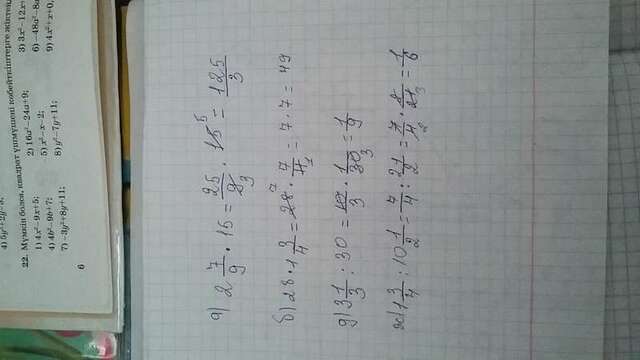 4) 5y²+2y−3;
22. Мүмкін болса, квадрат үшмүшені көбейткіштерге жікте
1) 4x²−9x+5; 2) 16a²−24a+9; 3) 3x²−12x+
4) 4b²−9b+7; 5) x²−x−2; 6) −48a²−8a
7) −3y²+8y+11; 8) y²−7y+11; 9) 4x²+x+0,
6
а) 2 7/9 · 15 = 25/9 3 · 15 5 = 125/3
б) 28 · 1 3/4 = 28 7 · 7/4 1 = 7 · 7 = 49
д) 3 1/3 : 30 = 10/3 · 1/30 3 = 1/9
ж) 1 3/4 : 10 1/2 = 7/4 : 21/2 = 7/4 2 · 2/21 3 = 1/6